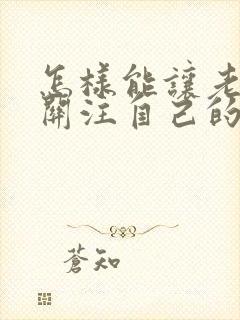 怎樣能讓老
關注自己的
蒼知